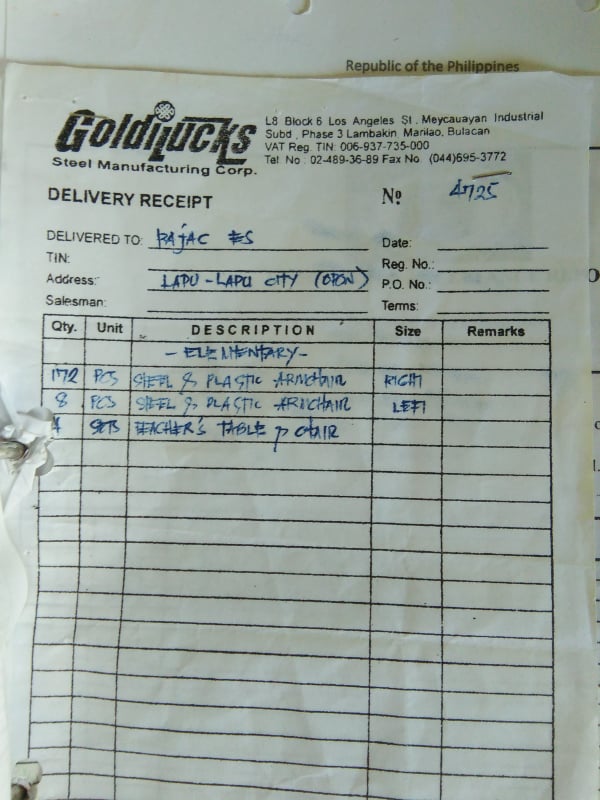 Republic of the Philippines
Goldilucks
Steel Manufacturing Corp.
L8 Block 6 Los Angeles St. Meycauayan Industrial
Subd., Phase 3 Lambakin Marilao, Bulacan
VAT Reg. TIN: 006-937-735-000
Tel No : 02-489-36-89 Fax No. (044)695-3772
DELIVERY RECEIPT Nº 4725
DELIVERED TO: BAJAC ES Date:
TIN: Reg. No.:
Address: LAPU-LAPU CITY (OPON) P.O. No.:
Salesman: Terms:
Qty. Unit DESCRIPTION Size Remarks
- ELEMENTARY -
172 PCS STEEL & PLASTIC ARMCHAIR RIGHT
8 PCS STEEL & PLASTIC ARMCHAIR LEFT
4 SETS TEACHER'S TABLE & CHAIR